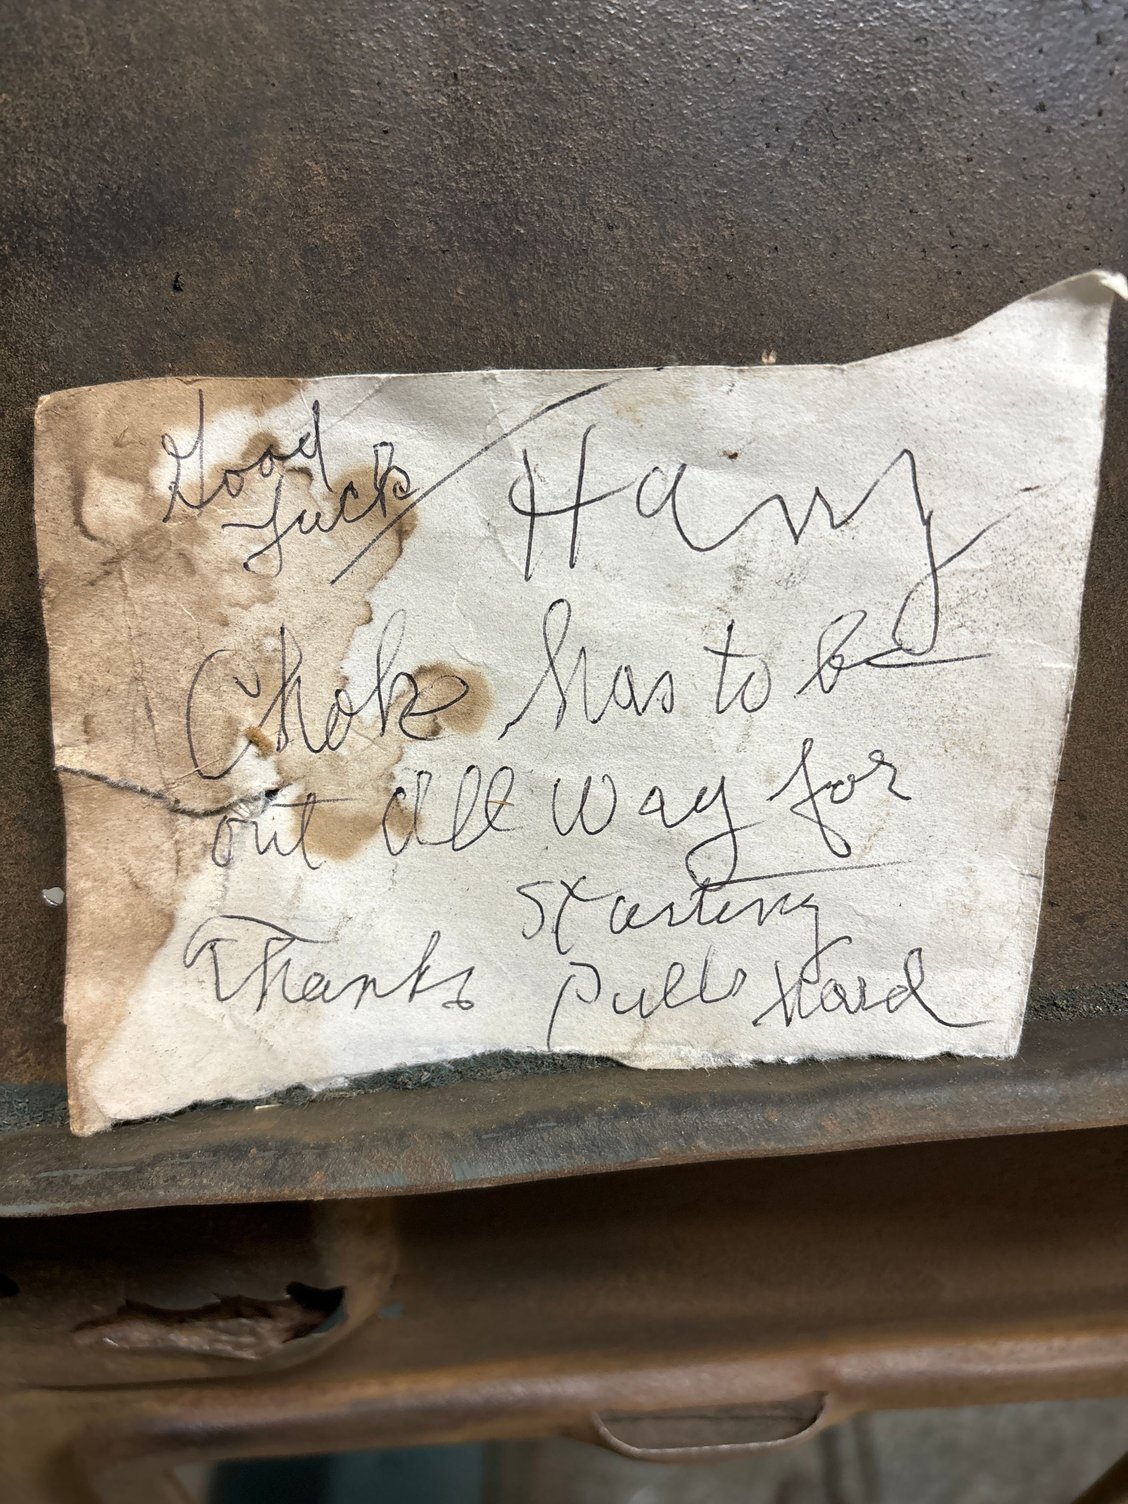 Good
Luck
Harry
Choke has to be
out all way for
starting
Thanks
pulls hard